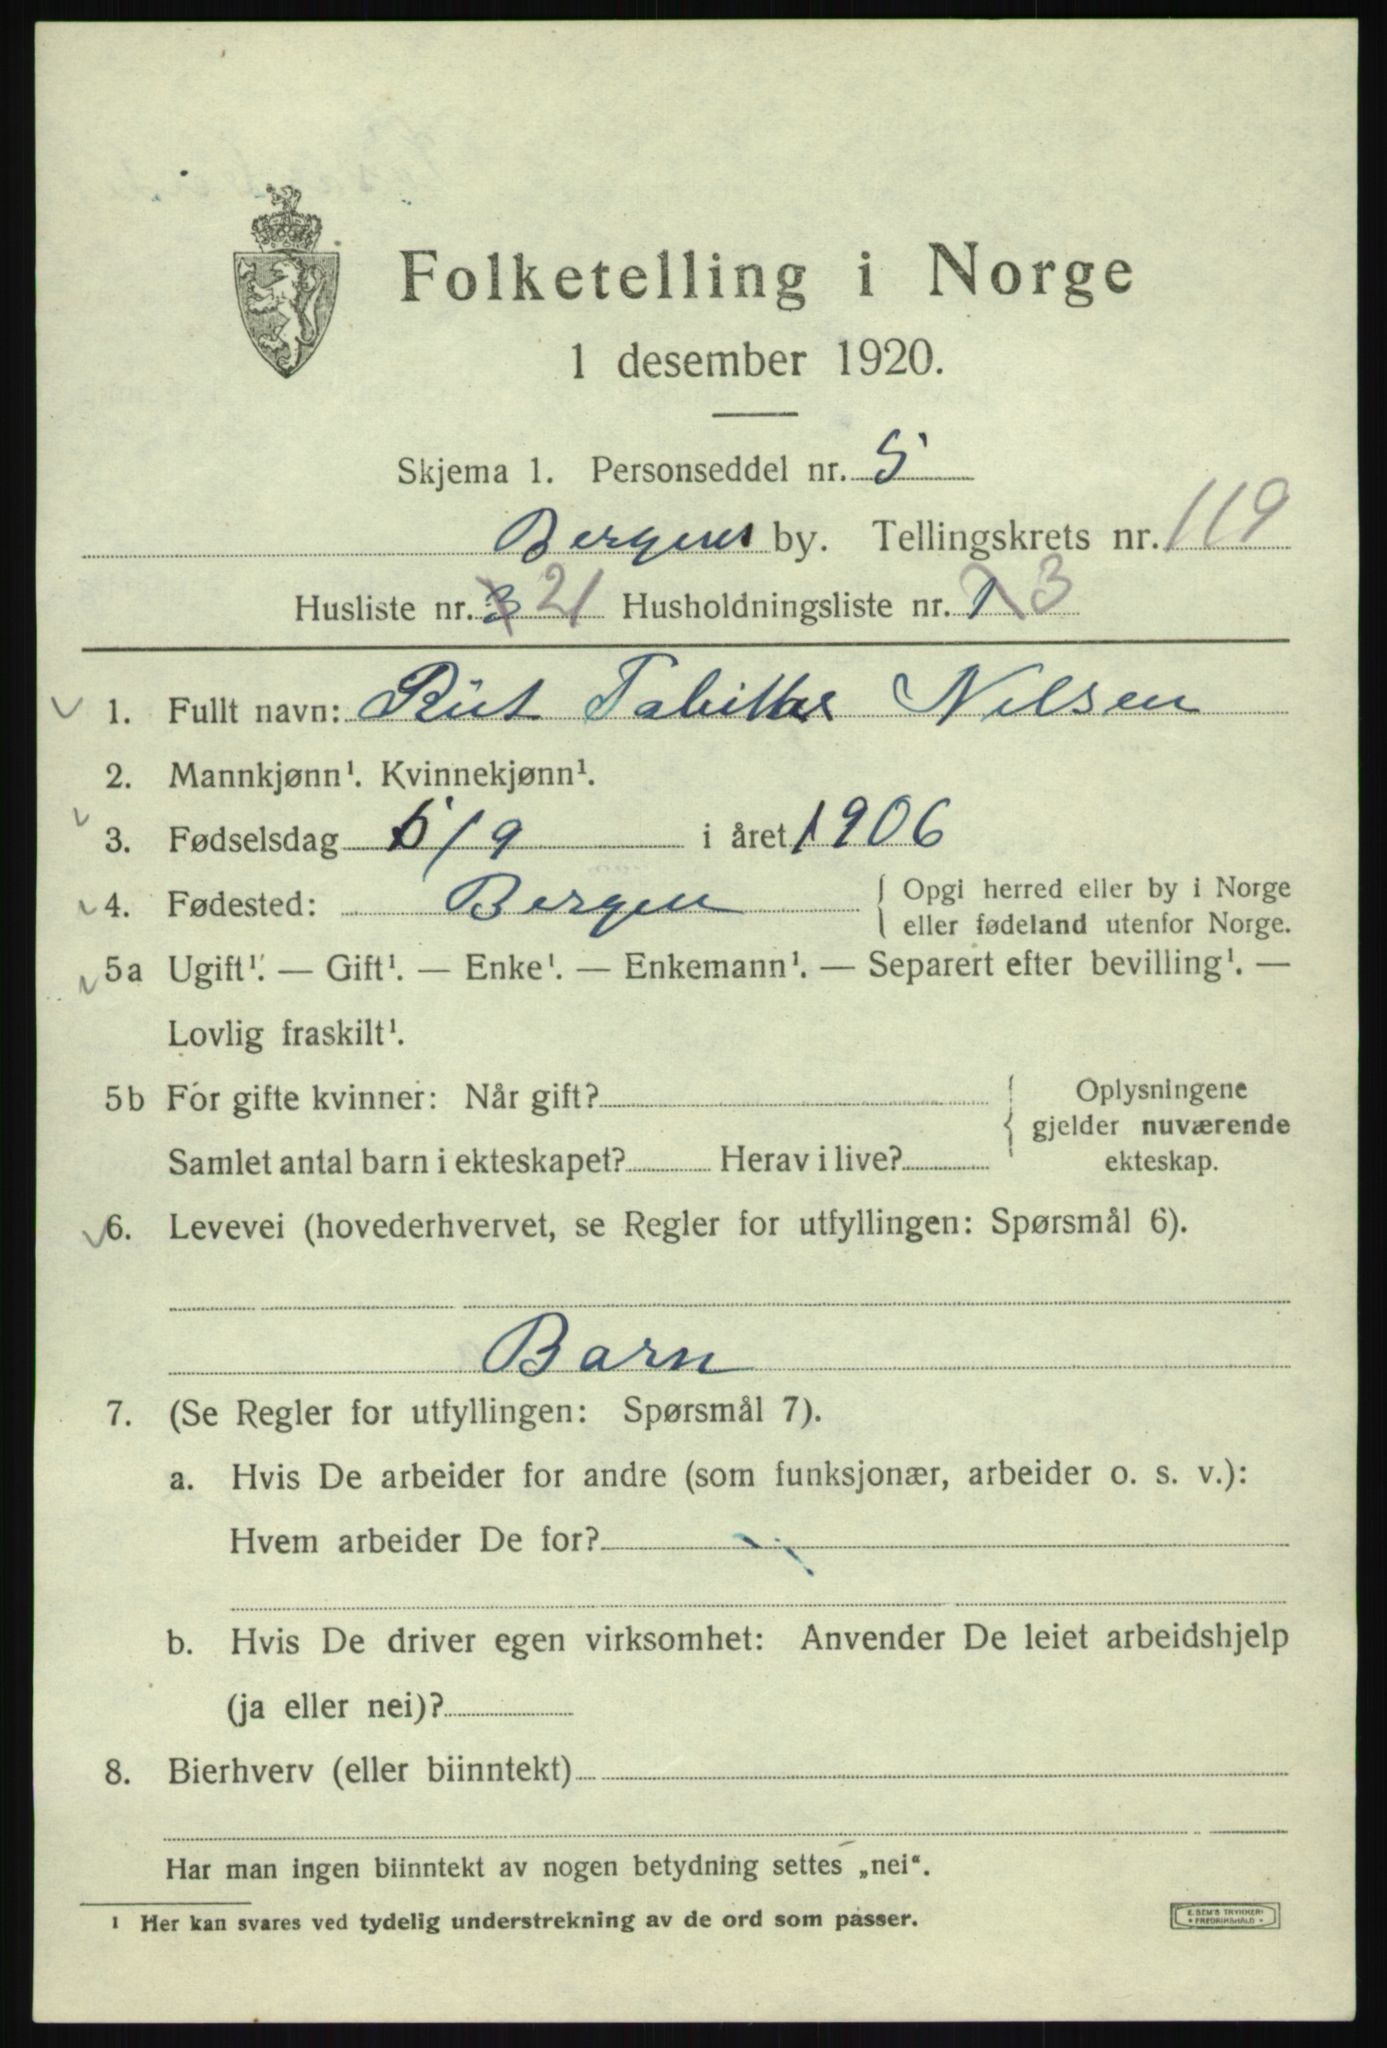 Folketelling i Norge
1 desember 1920.
Skjema 1. Personseddel nr. 5
Bergens by. Tellingskrets nr. 119
Husliste nr. 3 21 Husholdningsliste nr. 1 3
1. Fullt navn: Rut Tabitha Nilsen
2. Mannkjønn¹. Kvinnekjønn¹.
3. Fødselsdag 5/9 i året 1906
4. Fødested: Bergen { Opgi herred eller by i Norge
eller fødeland utenfor Norge.
5a Ugift¹. — Gift¹. — Enke¹. — Enkemann¹. — Separert efter bevilling¹. —
Lovlig fraskilt¹.
5b For gifte kvinner: Når gift? { Oplysningene
gjelder nuværende
Samlet antal barn i ekteskapet? Herav i live? ekteskap.
6. Levevei (hovederhvervet, se Regler for utfyllingen: Spørsmål 6).
Barn
7. (Se Regler for utfyllingen: Spørsmål 7).
a. Hvis De arbeider for andre (som funksjonær, arbeider o. s. v.):
Hvem arbeider De for?
b. Hvis De driver egen virksomhet: Anvender De leiet arbeidshjelp
(ja eller nei)?
8. Bierhverv (eller biinntekt)
Har man ingen biinntekt av nogen betydning settes „nei“.
¹ Her kan svares ved tydelig understrekning av de ord som passer.
E. SEM'S TRYKKERI
FREDRIKSHALD